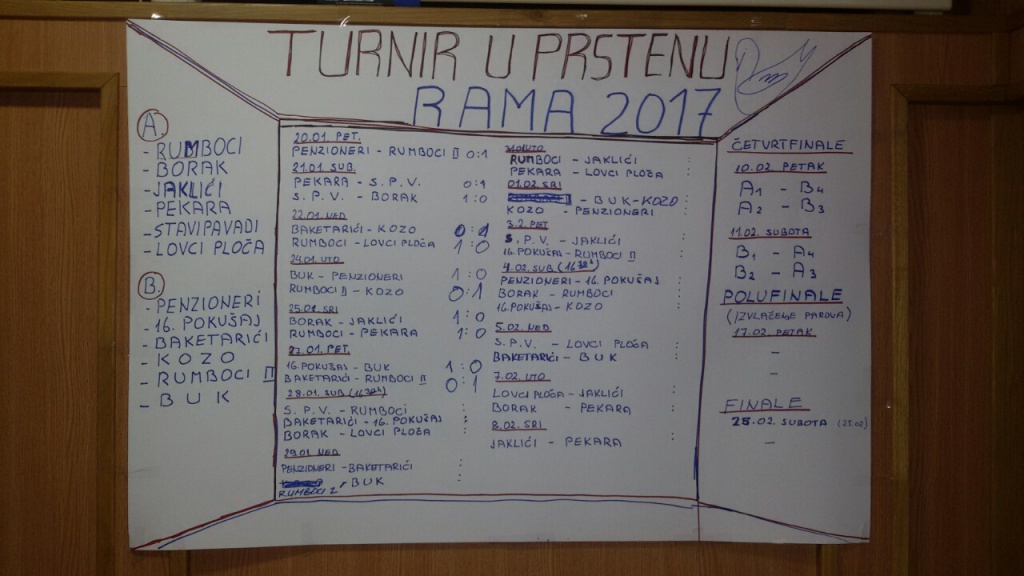 TURNIR U PRSTENU
RAMA 2017
A.
- RUMBOCI
- BORAK
- JAKLIĆI
- PEKARA
- STAVIPAVADI
- LOVCI PLOČA
B.
- PENZIONERI
- 16. POKUŠAJ
- BAKETARIĆI
- KOZO
- RUMBOCI II
- BUK
20.01. PET.
PENZIONERI - RUMBOCI II 0:1
21.01. SUB.
PEKARA - S.P.V. 0:1
S.P.V. - BORAK 1:0
22.01. NED
BAKETARIĆI - KOZO 0:1
RUMBOCI - LOVCI PLOČA 1:0
24.01. UTO
BUK - PENZIONERI 1:0
RUMBOCI II - KOZO 0:1
25.01. SRI
BORAK - JAKLIĆI 1:0
RUMBOCI - PEKARA 1:0
27.01. PET.
16. POKUŠAJ - BUK 1:0
BAKETARIĆI - RUMBOCI II 0:1
28.01. SUB (1630h)
S.P.V. - RUMBOCI :
BAKETARIĆI - 16. POKUŠAJ :
BORAK - LOVCI PLOČA :
29.01. NED
PENZIONERI - BAKETARIĆI :
RUMBOCI 2 - BUK :
31.01. UTO
RUMBOCI - JAKLIĆI :
PEKARA - LOVCI PLOČA :
01.02. SRI
- BUK - KOZO :
KOZO - PENZIONERI :
3.2. PET
S.P.V. - JAKLIĆI :
16. POKUŠAJ - RUMBOCI II :
4.02. SUB. (1630h)
PENZIONERI - 16. POKUŠAJ :
BORAK - RUMBOCI :
16. POKUŠAJ - KOZO :
5.02. NED
S.P.V. - LOVCI PLOČA :
BAKETARIĆI - BUK :
7.02. UTO
LOVCI PLOČA - JAKLIĆI :
BORAK - PEKARA :
8.02. SRI
JAKLIĆI - PEKARA :
ČETVRTFINALE
10.02. PETAK
A1 - B4
A2 - B3
11.02. SUBOTA
B1 - A4
B2 - A3
POLUFINALE
(IZVLAČENJE PAROVA)
17.02. PETAK
-
-
FINALE
25.02. SUBOTA (25.02)
-